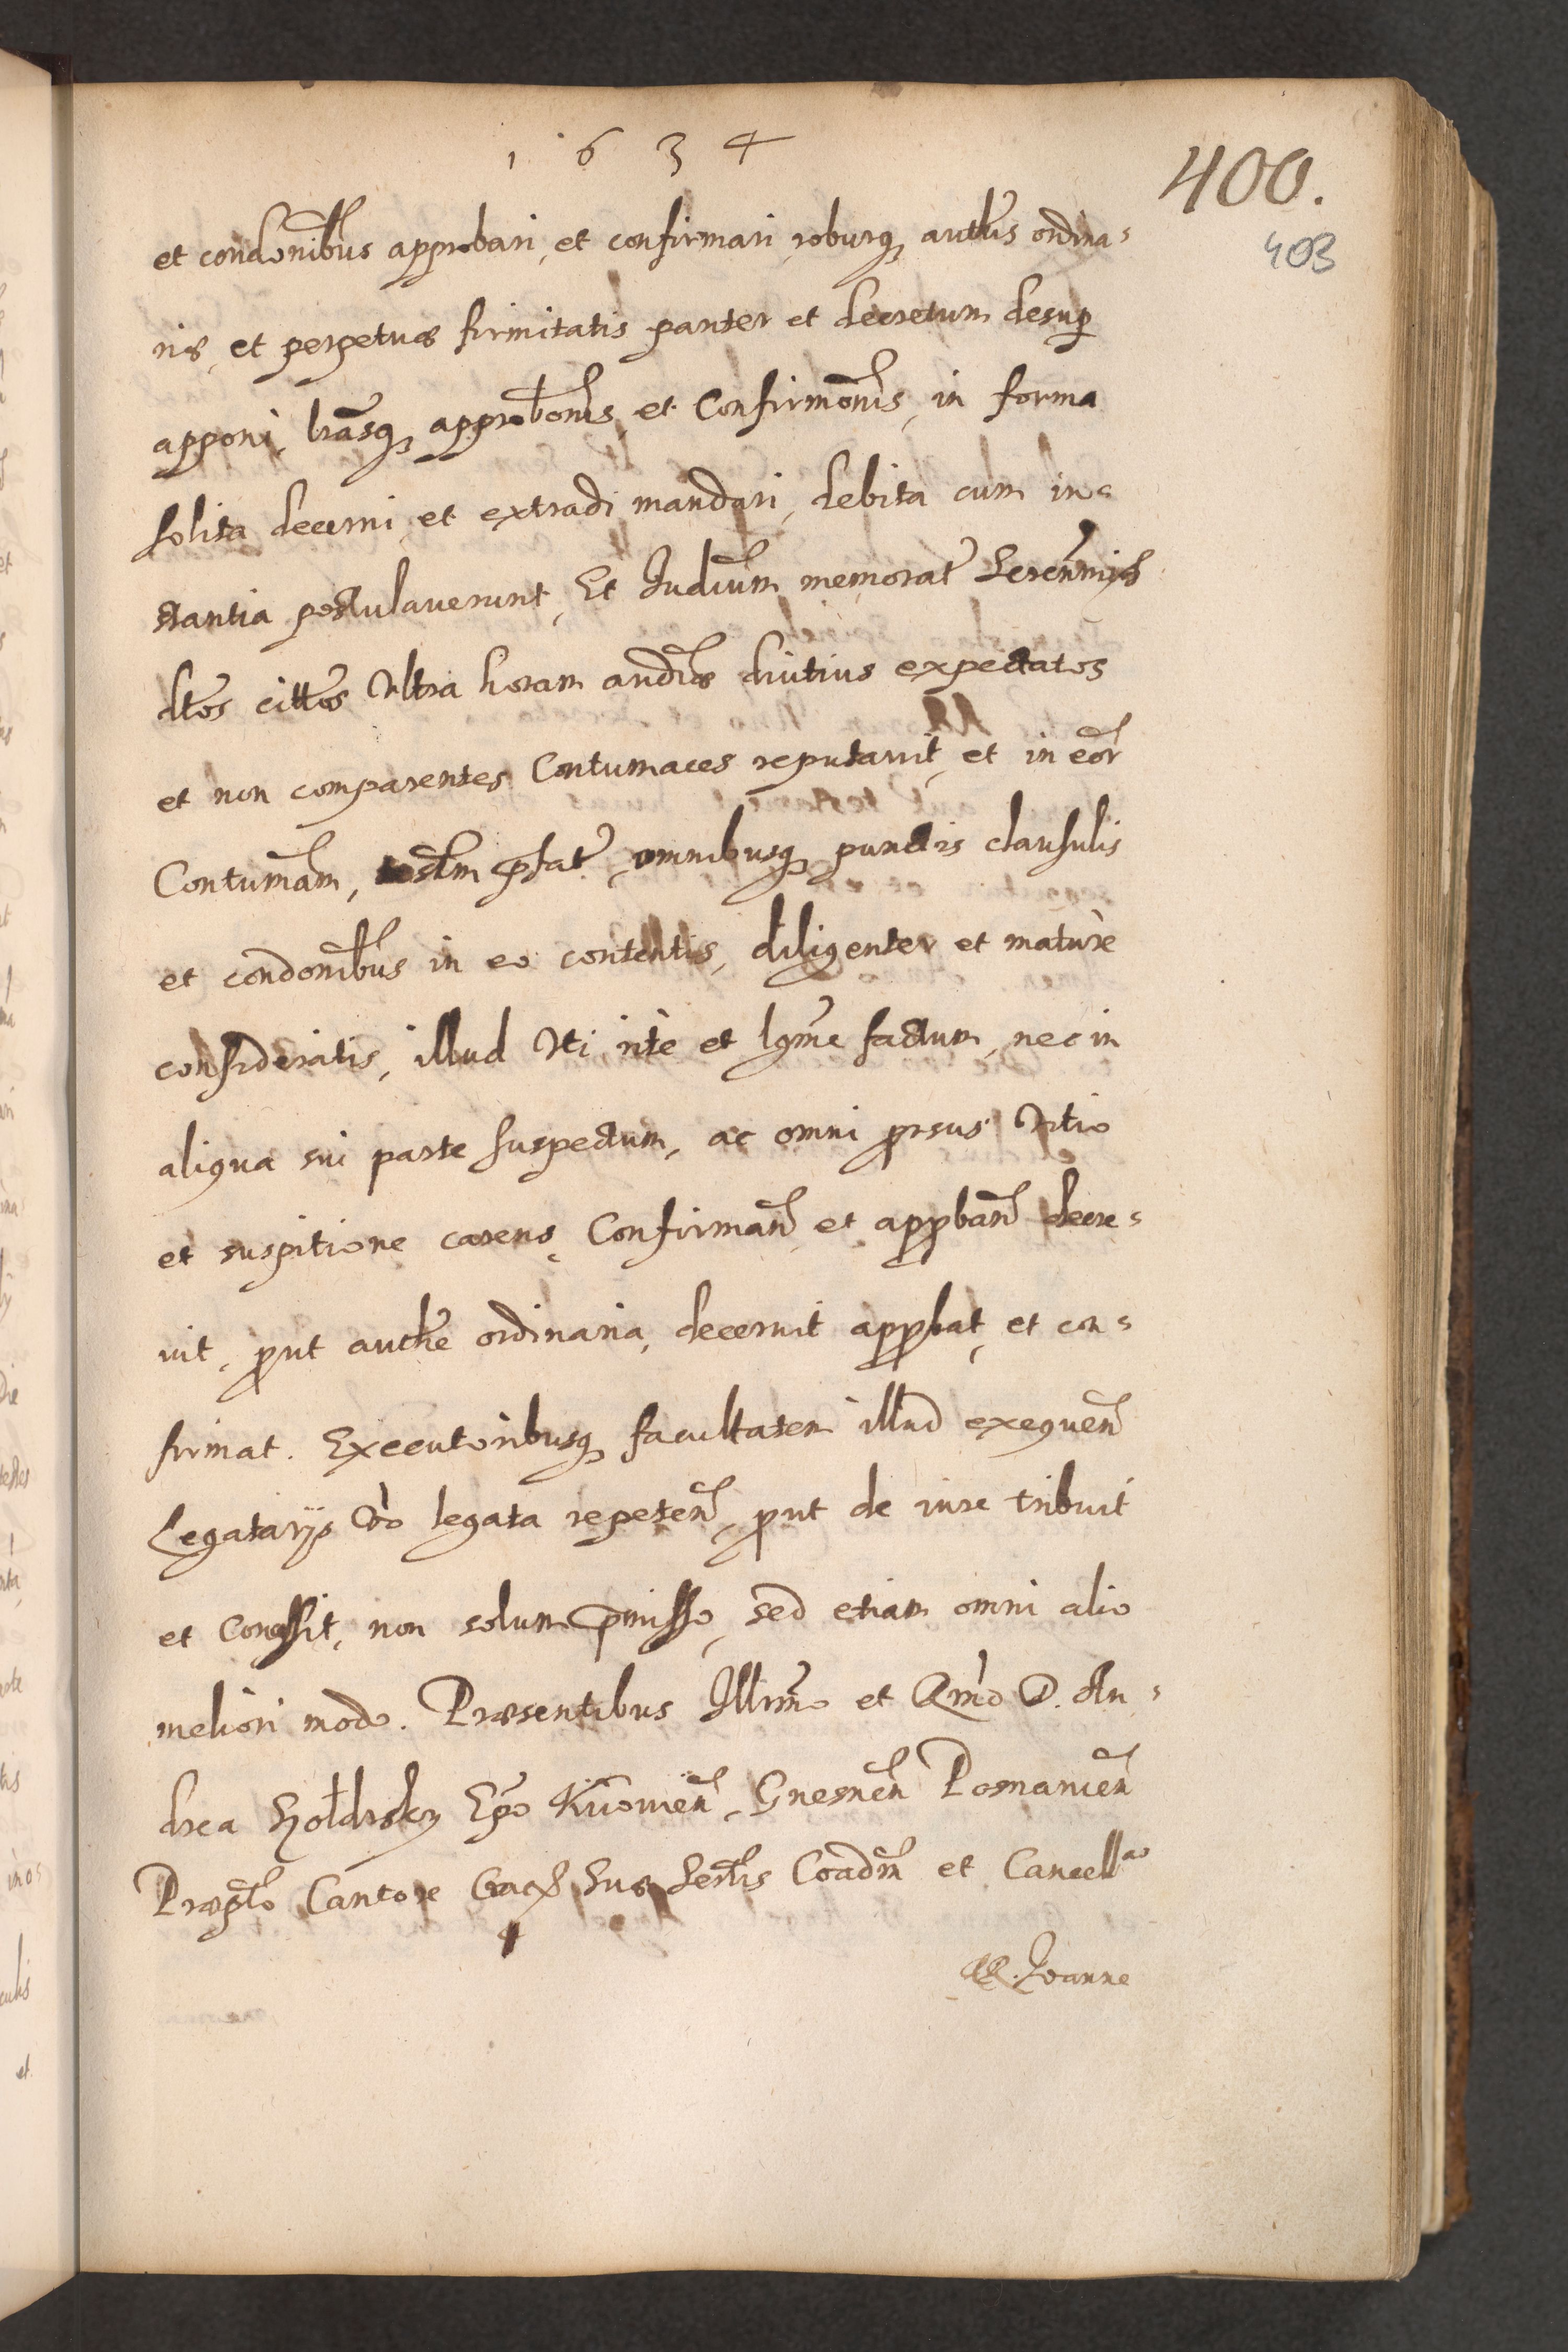 1 6 3 4
400.
403
et condōnibus approbari, et confirmari roburq₃ autthis ordina=
riæ, et perpetuæ firmitatis pariter et decretum desup
apponi, lrāsq₃ approbōnis, et Confirmōnis, in forma
solita decerni, et extradi mandari, debita cum ins=
stantia postulauerunt, Et Iudium memorat̃ Serenmis
dtos cittos Vltra horam audiæ diutius expectatos
et non comparentes Contumaces reputauit, et in eōr
Contumām, testm pfat̃, omnibusq₃ punctis clausulis
et condōnibus in eo contentis, diligenter et maturè
consideratis, illud Vti ritè et lgme factum, nec in
aliqua sui parte suspectum, ac omni prsus Vitio
et suspitione carens, Confirmañ et appbañ decre=
uit, put autthe ordinaria, decernit appbat, et con=
firmat. Executoribusq₃ facultatem illud exequeñ
Legatarijs Vò legata repeteñ, put de iure tribuit
et concessit, non solum pmisso, sed etiam omni alio
meliori modo. Præsentibus Illrmo et Rmo D. An=
drea Szołdrsky Epo Kiiouieñ, Gnesneñ Posnanieñ
Præpto Cantore Crac. Suæ Sertis Coadm et Cancellao
R. Ioanne